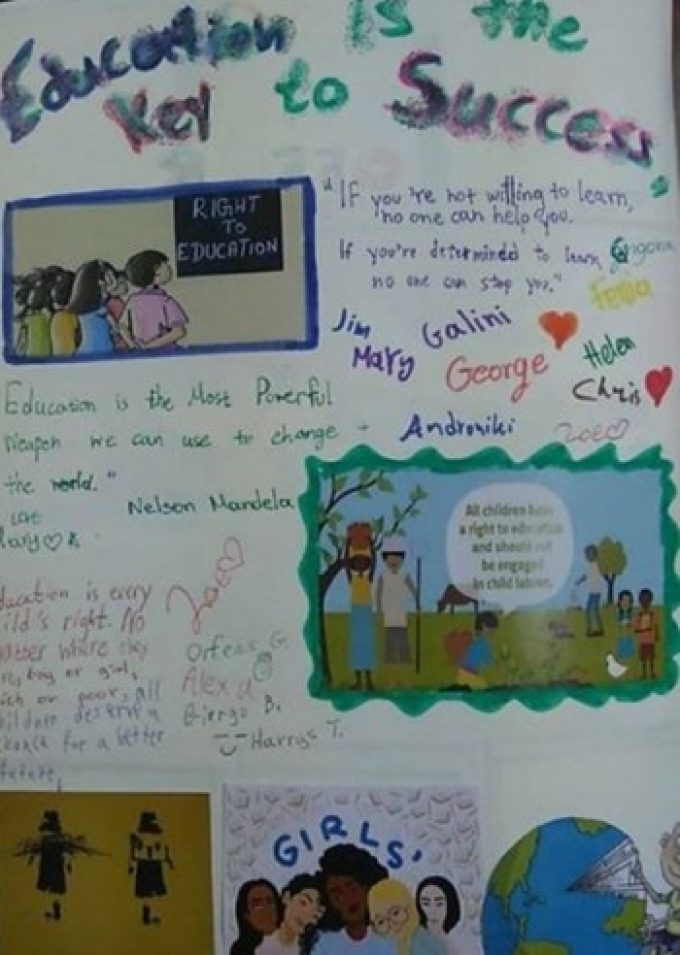 Education is the
Key to Success
RIGHT
TO
EDUCATION
"If you're not willing to learn,
no one can help you.
If you're determined to learn
no one can stop you."
Jim
Galini
Mary
George
Helen
Chris
Androniki
Zoe
Education is the Most Powerful
Weapon we can use to change
the world."
Nelson Mandela
All children have
a right to education
and should not
be engaged
in child labour.
Education is every
child's right. No
matter where they
boy or girl,
rich or poor, all
children deserve a
chance for a better
future,
Zoe
Orfeas G.
Alex
Giorgo B.
Harrys T.
GIRLS'